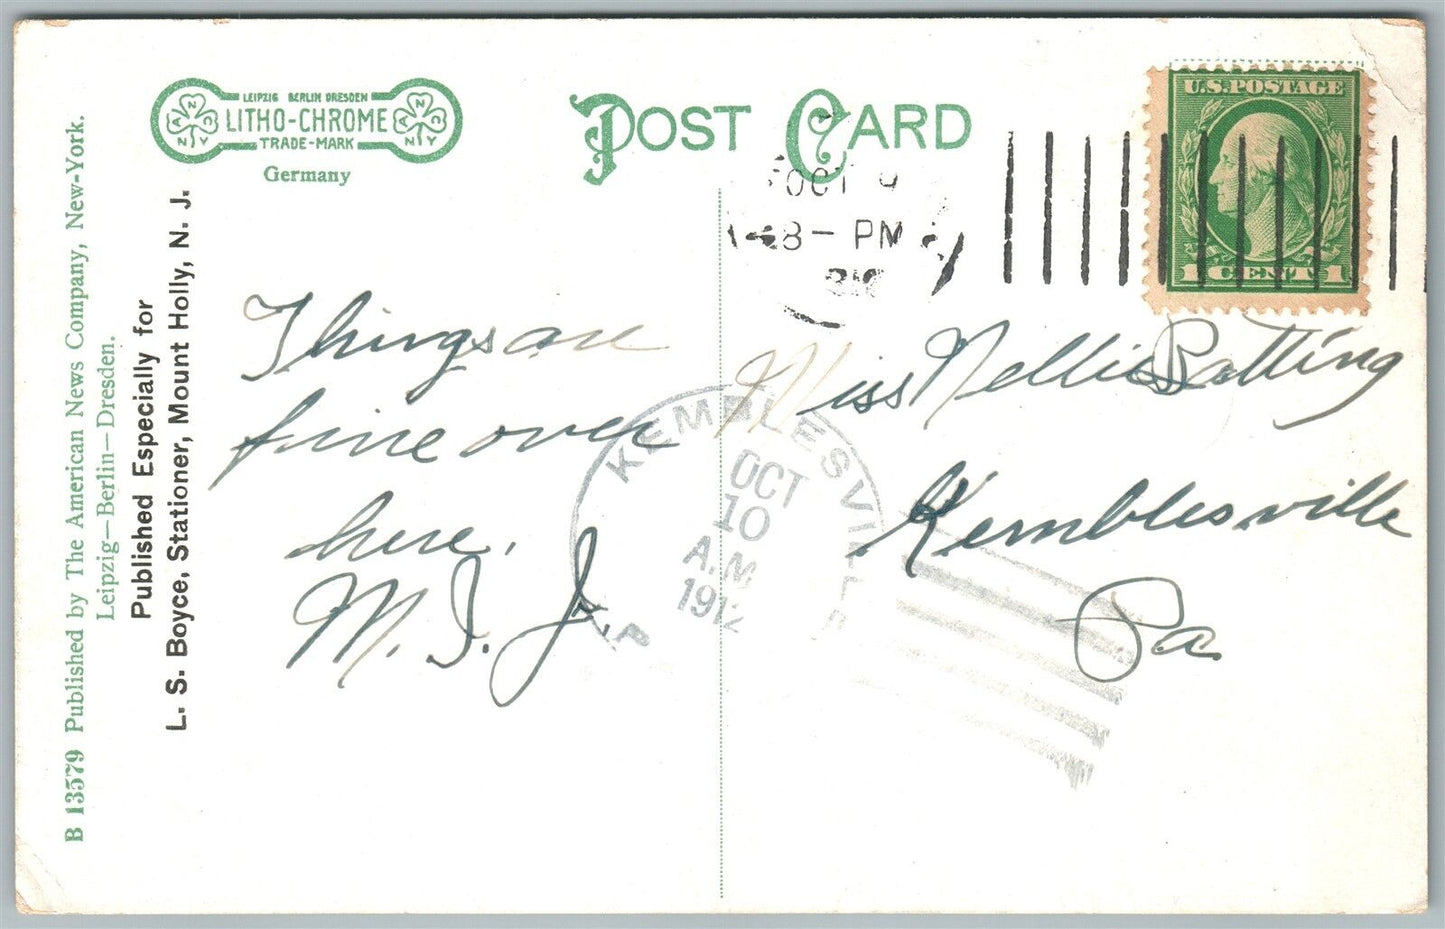 LEIPZIG BERLIN DRESDEN
LITHO-CHROME
TRADE-MARK
Germany
POST CARD
U.S. POSTAGE
1 CENT 1
OCT 9
8 – PM
B 13579 Published by The American News Company, New-York.
Leipzig—Berlin—Dresden.
Published Especially for
L. S. Boyce, Stationer, Mount Holly, N. J.
Things are
fine over
here.
M. I. J.
Miss Nellie Batting
Kemblesville
Pa
KEMBLESVILLE
OCT
10
A.M.
1912